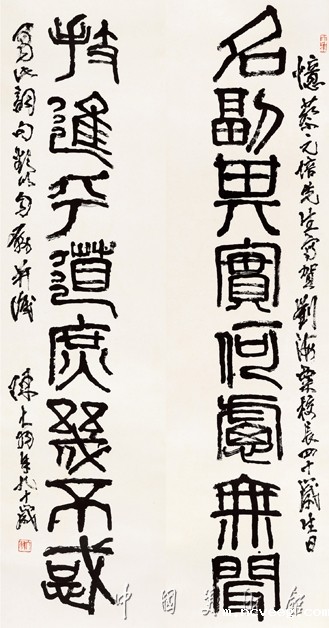 憶蔡元培先生寫賀劉海粟校長四十歲生日
名副其實何慮無聞
技進乎道庶幾不惑
寫此詞句以自勵并識 陳大羽年九十歲
中國美術館